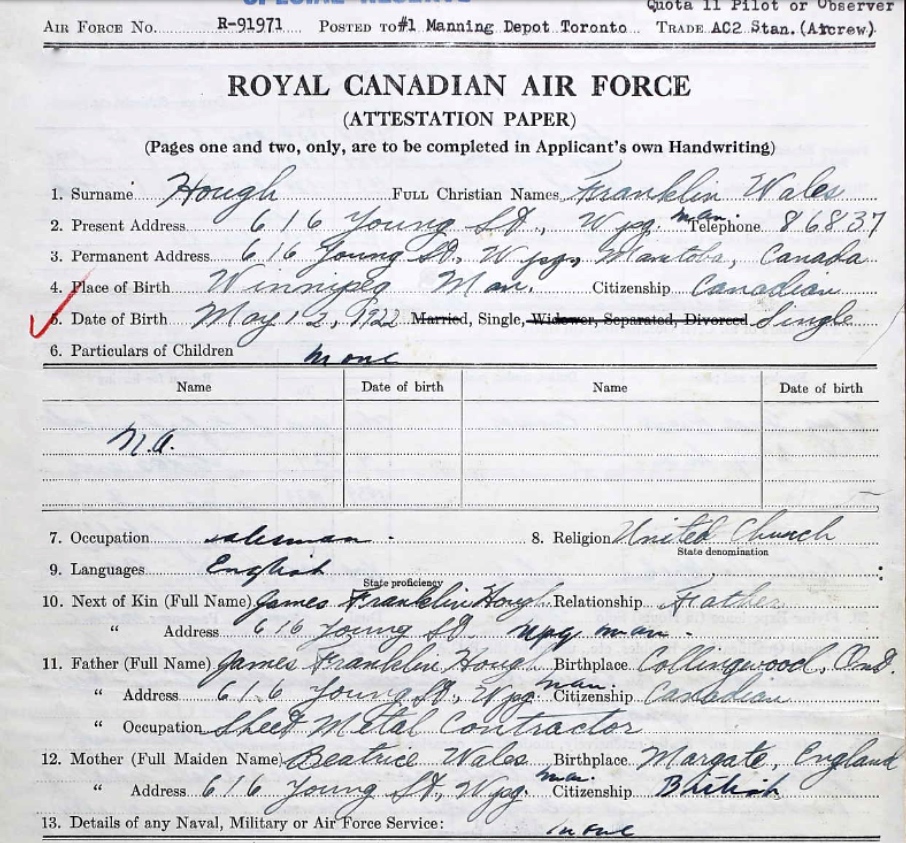 SPECIAL RESERVE
Quota 11 Pilot or Observer
AIR FORCE NO. R-91971 POSTED TO #1 Manning Depot Toronto TRADE AC2 Stan.(Aircrew)
ROYAL CANADIAN AIR FORCE
(ATTESTATION PAPER)
(Pages one and two, only, are to be completed in Applicant's own Handwriting)
1. Surname Hough FULL Christian Names Franklin Wales
2. Present Address 616 Young St., Wpg. Man. Telephone 86837
3. Permanent Address 616 Young St., Wpg., Manitoba, Canada
4. Place of Birth Winnipeg Man. Citizenship Canadian
5. Date of Birth May 12, 1922 Married, Single, Widower, Separated, Divorced Single
6. Particulars of Children None
Name Date of birth Name Date of birth
N.A.
7. Occupation salesman. 8. Religion United Church
State denomination
9. Languages English
State proficiency
10. Next of Kin (Full Name) James Franklin Hough Relationship Father
" Address 616 Young St. Wpg. Man.
11. Father (Full Name) James Franklin Hough Birthplace Collingwood, Ont.
" Address 616 Young St., Wpg. Man. Citizenship Canadian
" Occupation Sheet Metal Contractor
12. Mother (Full Maiden Name) Beatrice Wales Birthplace Margate, England
" Address 616 Young St., Wpg. Man. Citizenship British
13. Details of any Naval, Military or Air Force Service: None